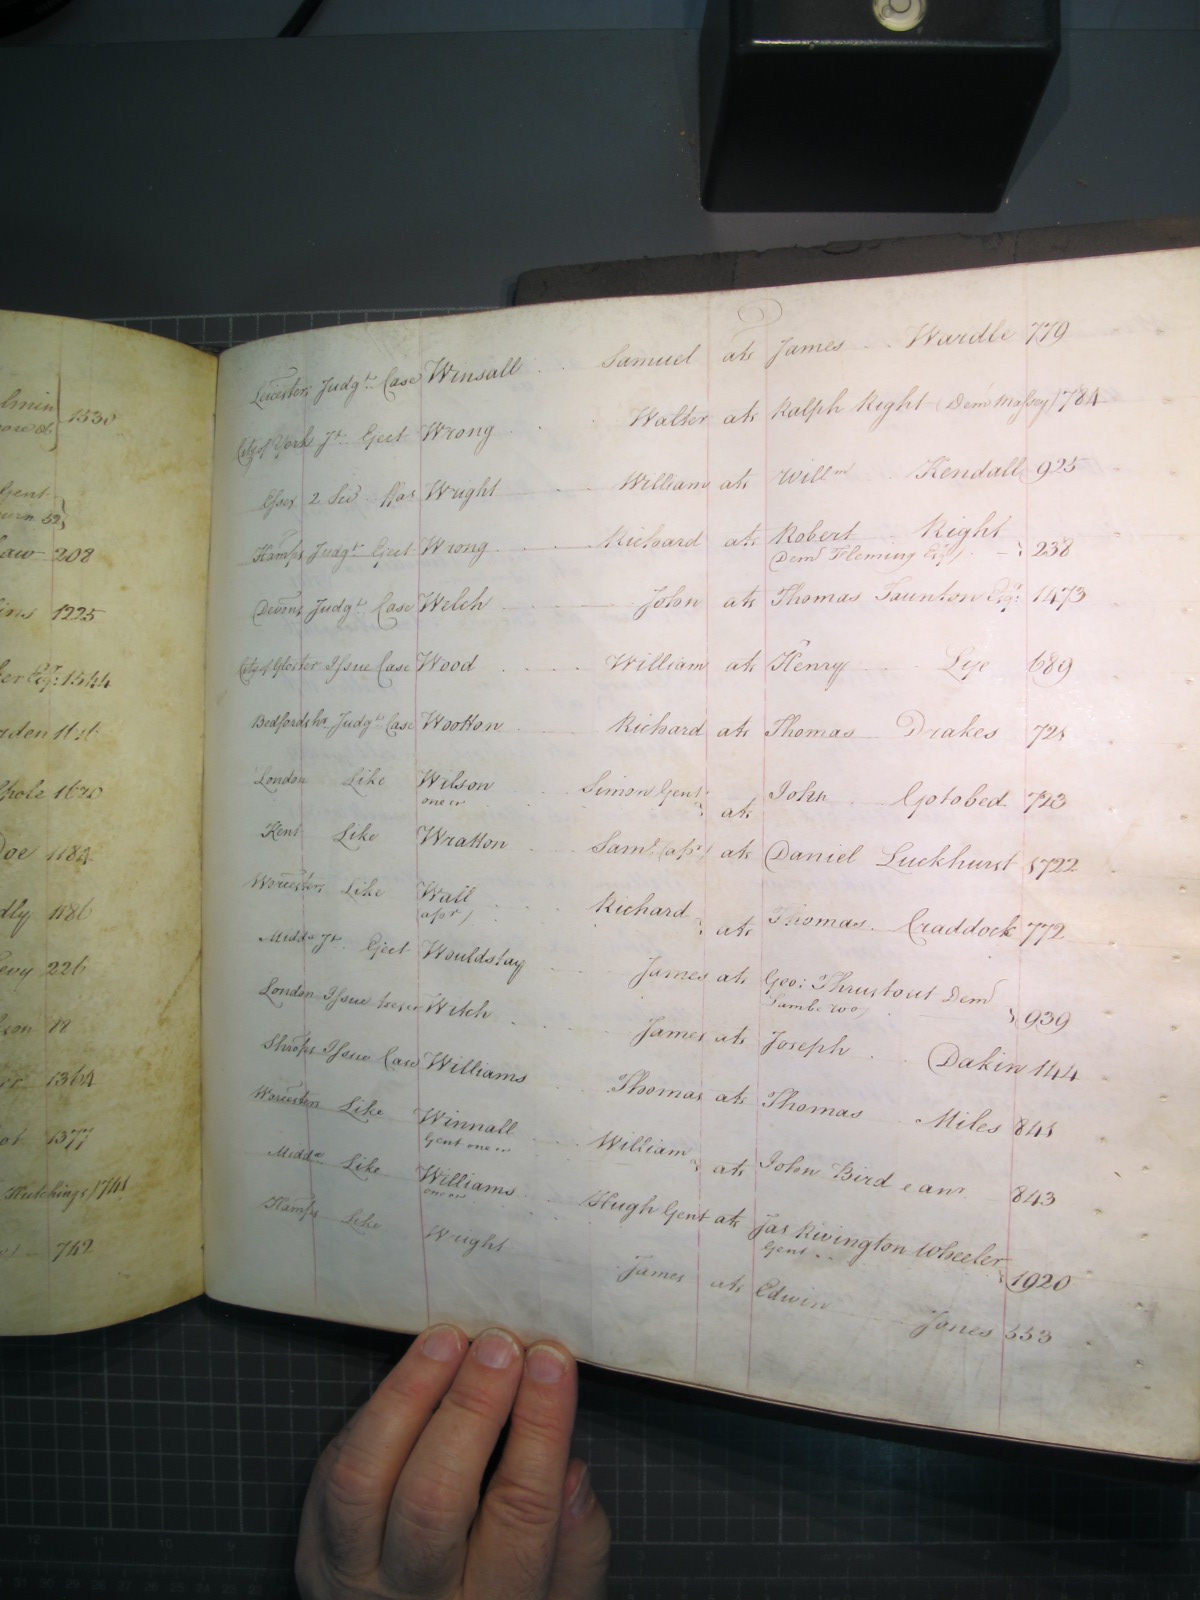 1530
Gent
law 208
1225
Esqr: 1544
gden
1620
Doe 1184
dly 1186
evy 226
12
1364
1377
Hutchings 1741
742
Leicesters Judgt. Case Winsall Samuel ats James Wardle 779
City of York Jt. Eject Wrong Walter ats Ralph Right (Demd Massey) 1784
Essex 2 Sci. Fias Wright William ats Willm Kendall 925
Hamps Judgt Eject Wrong Richard ats Robert Right
(Demd Fleming Esqr) 238
Devons Judgt Case Welch John ats Thomas Taunton Esqr: 1473
City of Gloster Issue Case Wood William ats Henry Lye 689
Bedfordshr Judgt Case Wootton Richard ats Thomas Drakes 721
London Like Wilson Simon Gent ats John Gotobed 723
one &c
Kent Like Wratton Saml (apr) ats Daniel Luckhurst 1722
Worcesters Like Wall Richard ats Thomas Craddock 772
(apr)
Middx Jt. Eject Wouldstay James ats Geo: Thrustout Demd
939
London Issue Witch James ats Joseph Dakin 144
Shrops Issue Case Williams Thomas ats Thomas Miles 841
Worcesters Like Winnall William ats John Bird & anr 843
Gent one &c
Middx Like Williams Hugh Gent ats Jas Rivington Wheeler
one &c Gent 1920
Hamps Like Wright James ats Edwin Jones 553